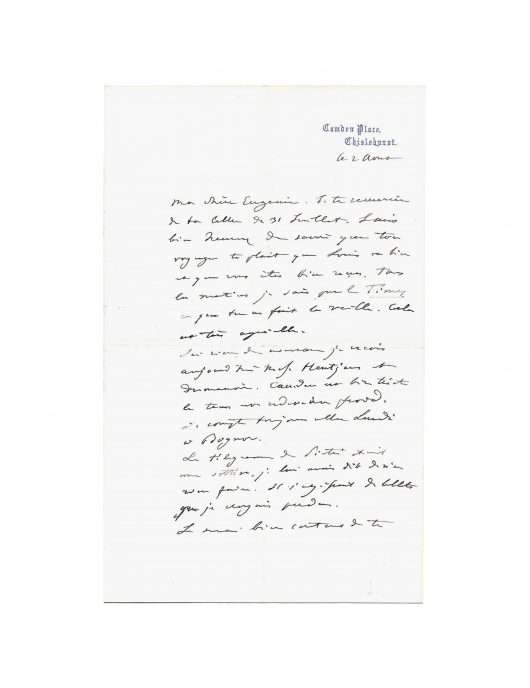 Camden Place,
Chislehurst.
le 2 Aout
Ma chère Eugénie. Je te remercie
de ta lettre du 31 Juillet. Je suis
bien heureux de savoir que ton
voyage te plait que Louis va bien
et que vous êtes bien reçus. Tous
les matins je sais par le Times
ce que tu as fait la veille. Cela
m'est très agréable.
rien de nouveau je reçois
aujourd'hui
Camden est bien triste
le tems est redevenu froid.
Je compte toujours aller Lundi
à Bognor.
Le télégramme de Piétri était
une sottise, je lui avais dit de n'en
rien faire. Il s'agissait de billets
que je croyais perdus.
Je serai bien content de te